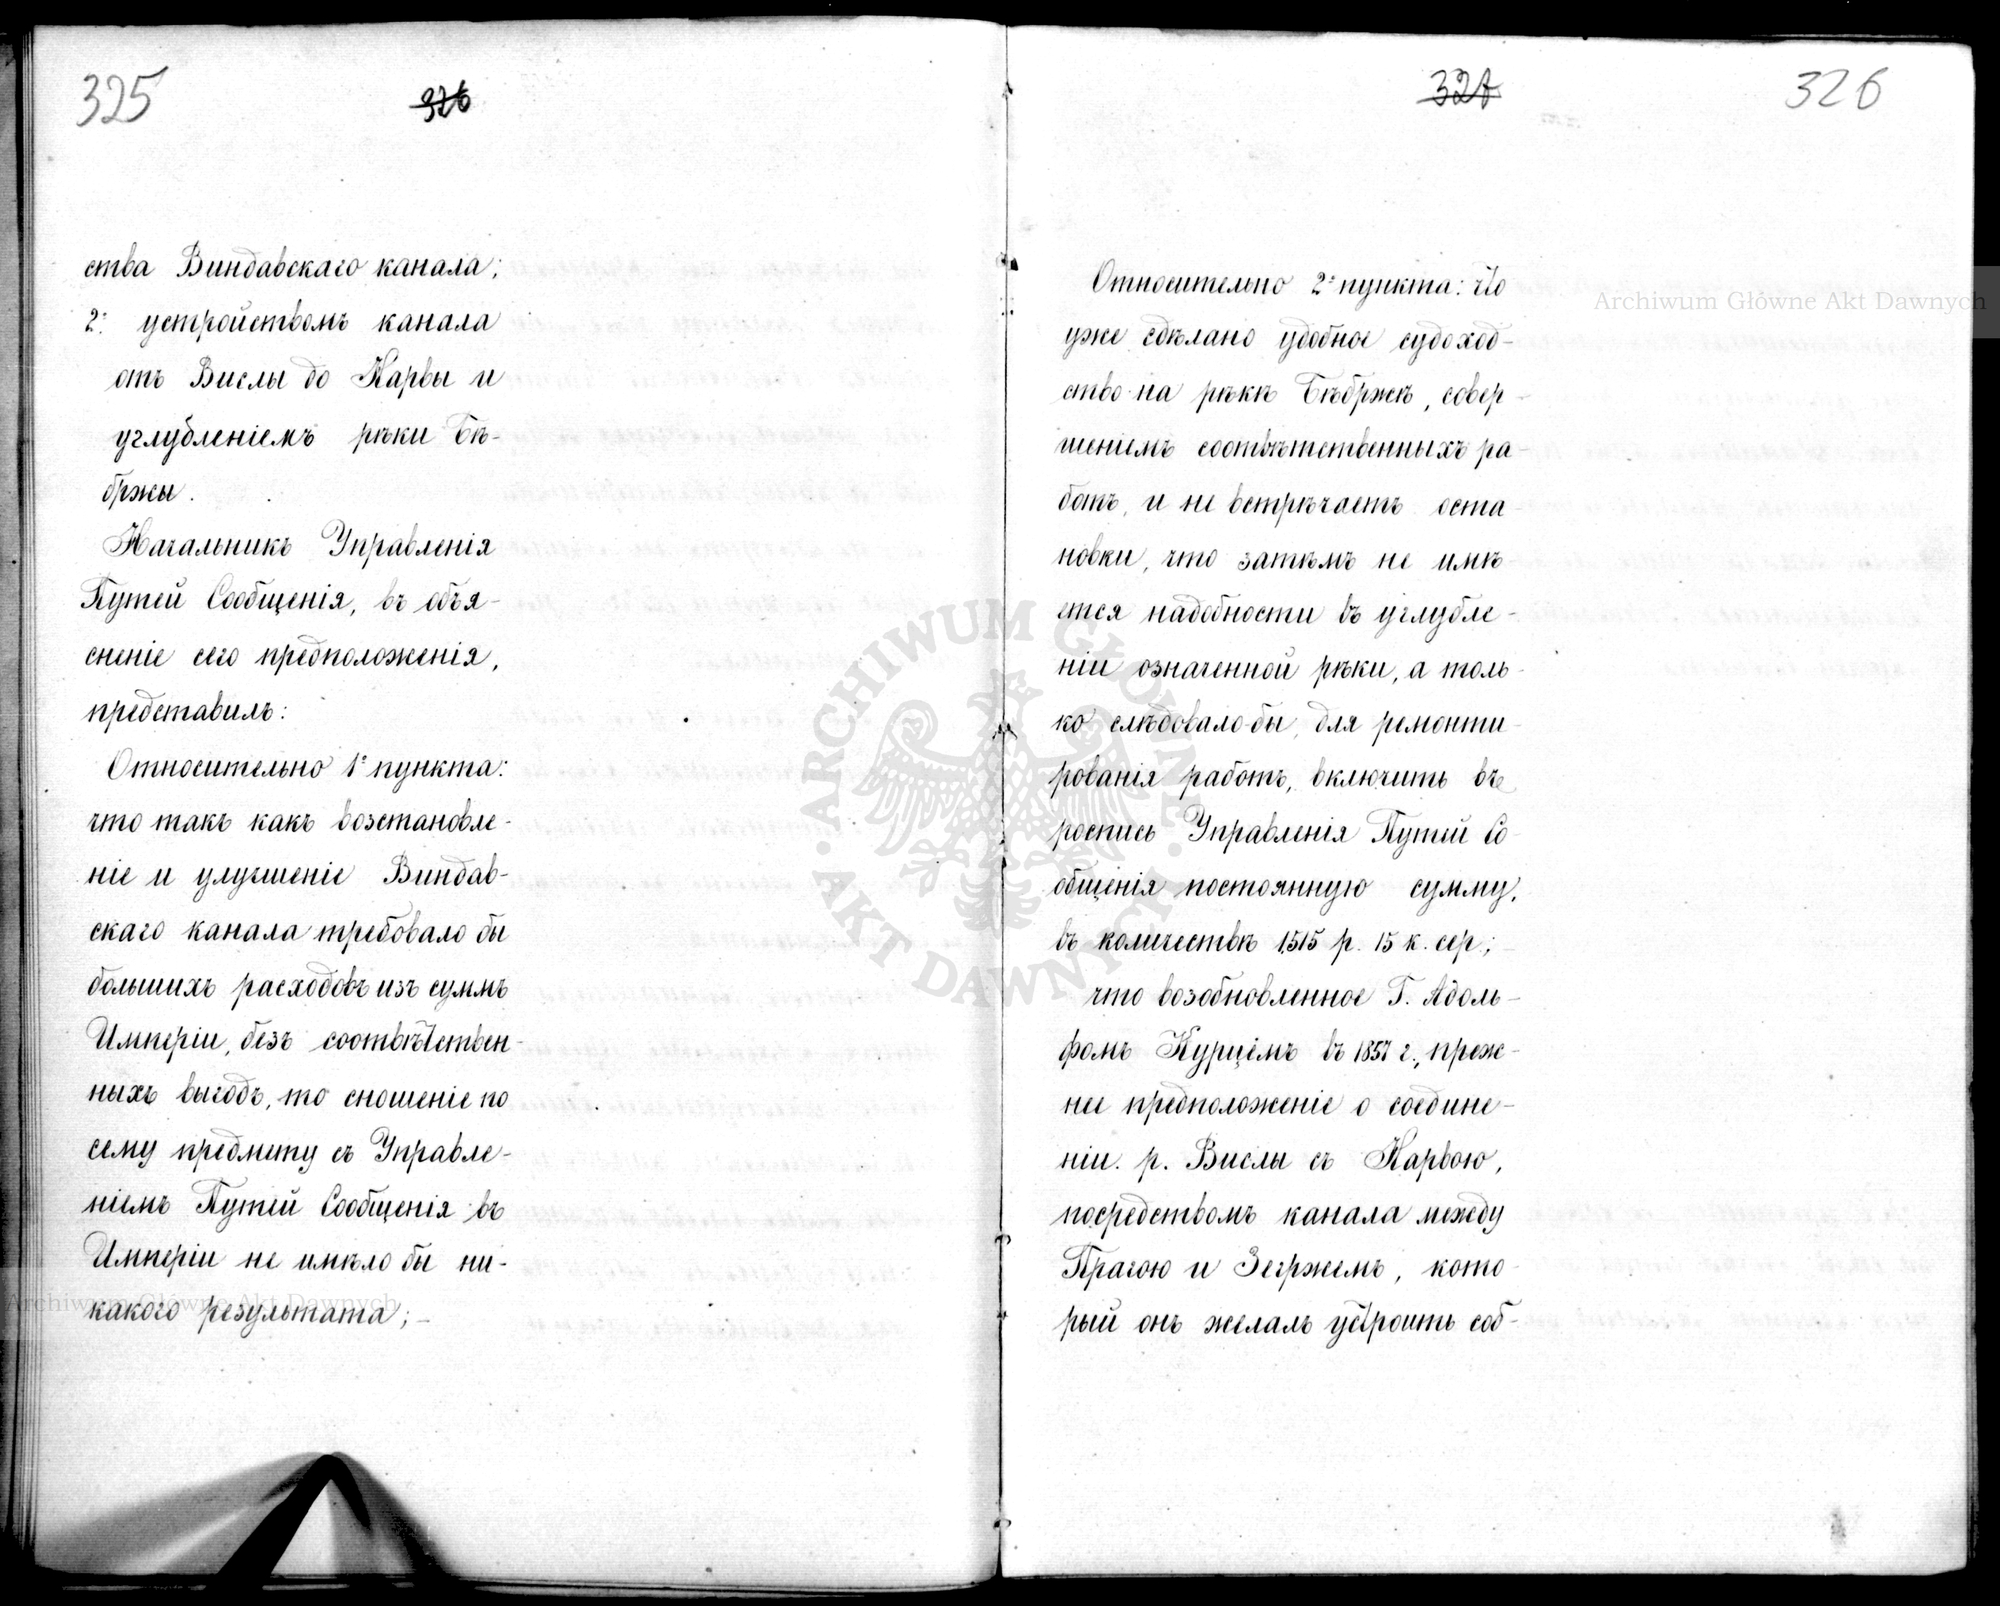 325
326
ства Виндавскаго канала;
2: устройствомъ канала
отъ Вислы до Нарвы и
углубленіемъ рѣки Бѣ-
бржы.
Начальникъ Управленія
Путей Сообщенія, въ объя-
сненіе сего предположенія,
представилъ:
Относительно 1º пункта:
что такъ какъ возстановле-
ніе и улучшеніе Виндав-
скаго канала требовало бы
большихъ расходовъ изъ суммъ
Имперіи, безъ соотвѣтствен-
ныхъ выгодъ, то сношеніе по
сему предмету съ Управле-
ніемъ Путей Сообщенія въ
Имперіи не имѣло бы ни-
какого результата; –
327
326
Относительно 2º пункта: что
уже сдѣлано удобное судоход-
ство на рѣкѣ Бѣбржѣ, совер-
шеніемъ соотвѣтственныхъ ра-
ботъ, и не встрѣчаетъ оста-
новки, что затѣмъ не имѣ-
ется надобности въ углубле-
ніи означенной рѣки, а толь-
ко слѣдовало-бы, для ремонти-
рованія работъ, включить въ
роспись Управленія Путей Со-
общенія постоянную сумму,
въ количествѣ 1515 р. 15 к. сер.; –
что возобновленное Г. Адоль-
фомъ Курцемъ въ 1857 г., преж-
нее предположеніе о соедине-
ніи р. Вислы съ Нарвою,
посредствомъ канала между
Прагою и Зегржемъ, кото-
рый онъ желалъ устроить соб-
Archiwum Główne Akt Dawnych
Archiwum Główne Akt Dawnych
ARCHIWUM GŁÓWNE AKT DAWNYCH